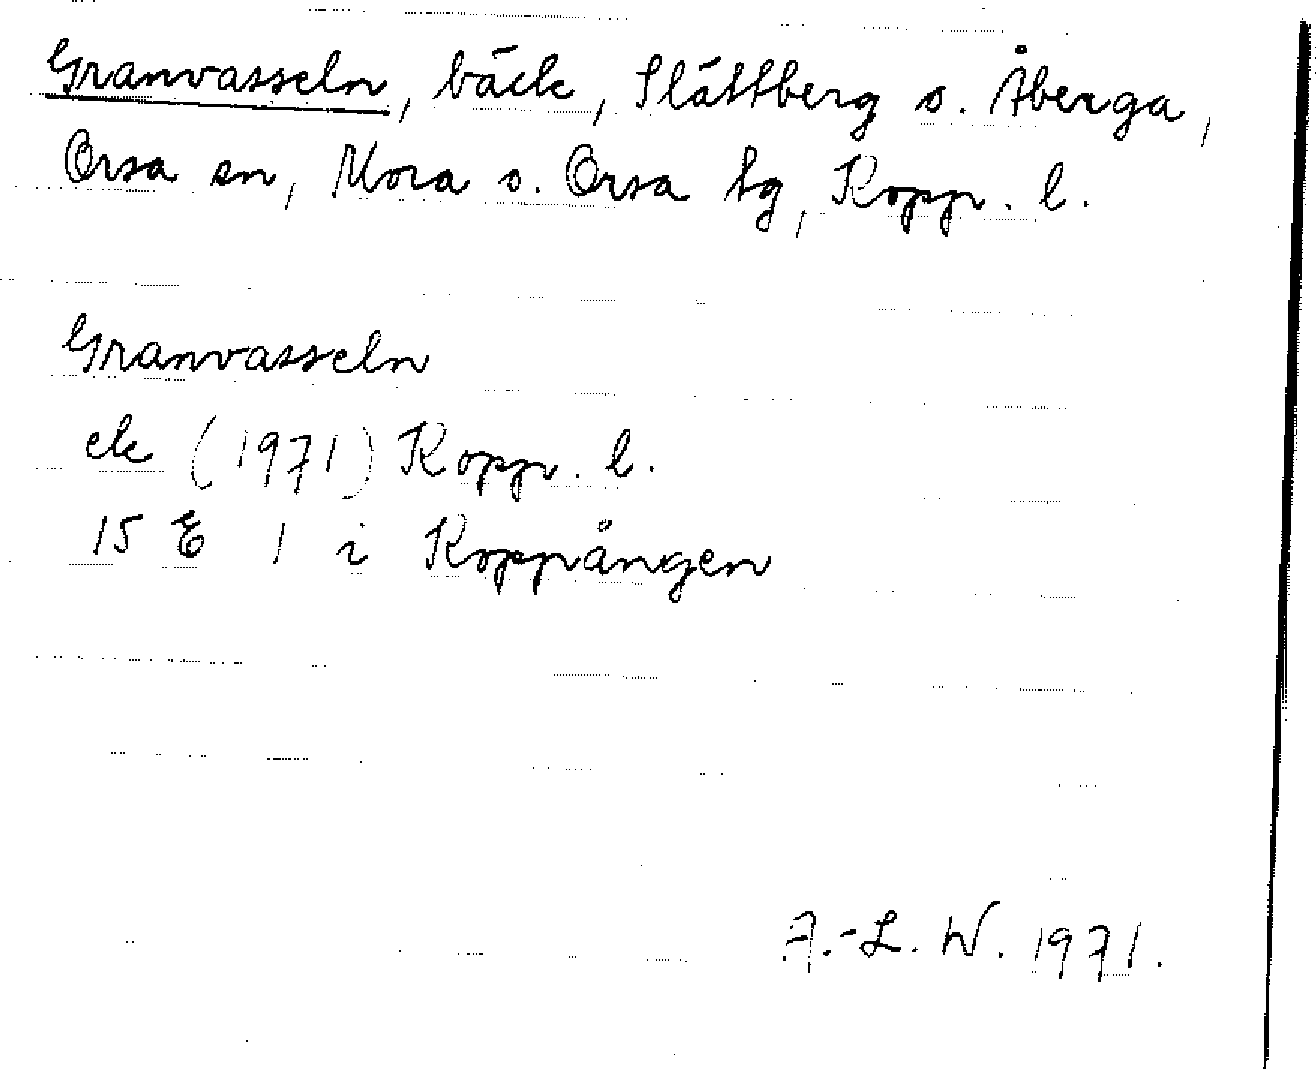 Granvasseln, bäck, Slättberg o. Åberga,
Orsa sn, Mora o. Orsa tg, Kopp. l.
Granvasseln
ek (1971) Kopp. l.
15 E 1 i Koppången
A.-L. W. 1971.